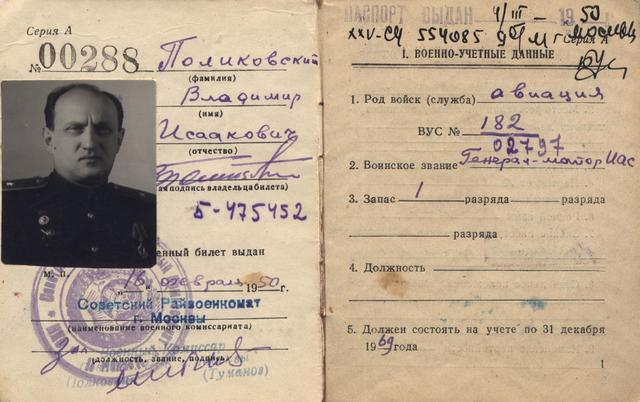 Серия А
№ 00288
Поликовский
(фамилия)
Владимир
(имя)
Исаакович
(отчество)
подпись владельца билета)
Б-475452
енный билет выдан
м. п. „16" февраля 1950 г.
Советский Райвоенкомат
г. Москвы
(наименование военного комиссариата)
Военный Комиссар
(должность, звание, подпись)
Полковник (Туманов)
ПАСПОРТ ВЫДАН 4/III – 1950
XXV-СЧ 554085 г Москвы
Серия А
I. ВОЕННО-УЧЕТНЫЕ ДАННЫЕ
1. Род войск (служба) авиация
ВУС № 182
02797
2. Воинское звание Генерал-майор ИАС
3. Запас 1 разряда разряда
разряда
4. Должность
5. Должен состоять на учете по 31 декабря
1969 года
1